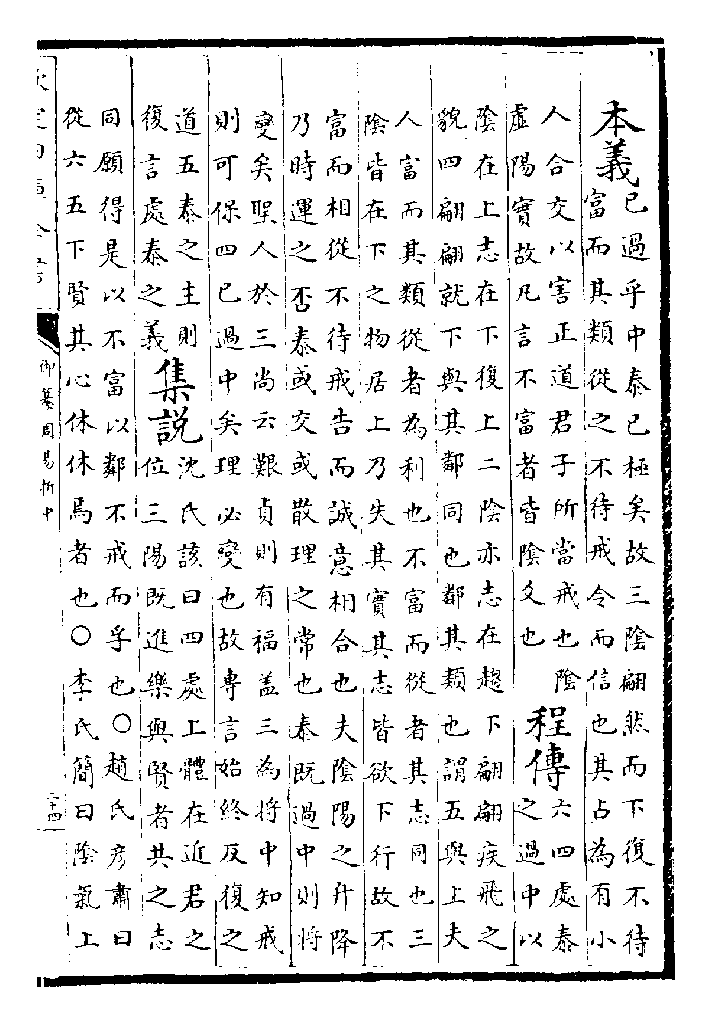 本義
已過乎中泰已極矣故三陰翩然而下復不待
富而其類從之不待戒令而信也其占為有小
人合交以害正道君子所當戒也陰
虛陽實故凡言不富者皆陰爻也
程傳
六四處泰
之過中以
陰在上志在下復上二陰亦志在趨下翩翩疾飛之
貌四翩翩就下與其鄰同也鄰其類也謂五與上夫
人富而其類從者為利也不富而從者其志同也三
陰皆在下之物居上乃失其實其志皆欲下行故不
富而相從不待戒告而誠意相合也夫陰陽之升降
乃時運之否泰或交或散理之常也泰既過中則將
變矣聖人於三尚云艱貞則有福盖三為將中知戒
則可保四已過中矣理必變也故專言始終反復之
道五泰之主則
復言處泰之義
集說
沈氏該曰四處上體在近君之
位三陽既進樂與賢者共之志
同願得是以不富以鄰不戒而孚也○趙氏彥肅曰
從六五下賢其心休休焉者也○李氏簡曰陰氣上
御纂周易折中